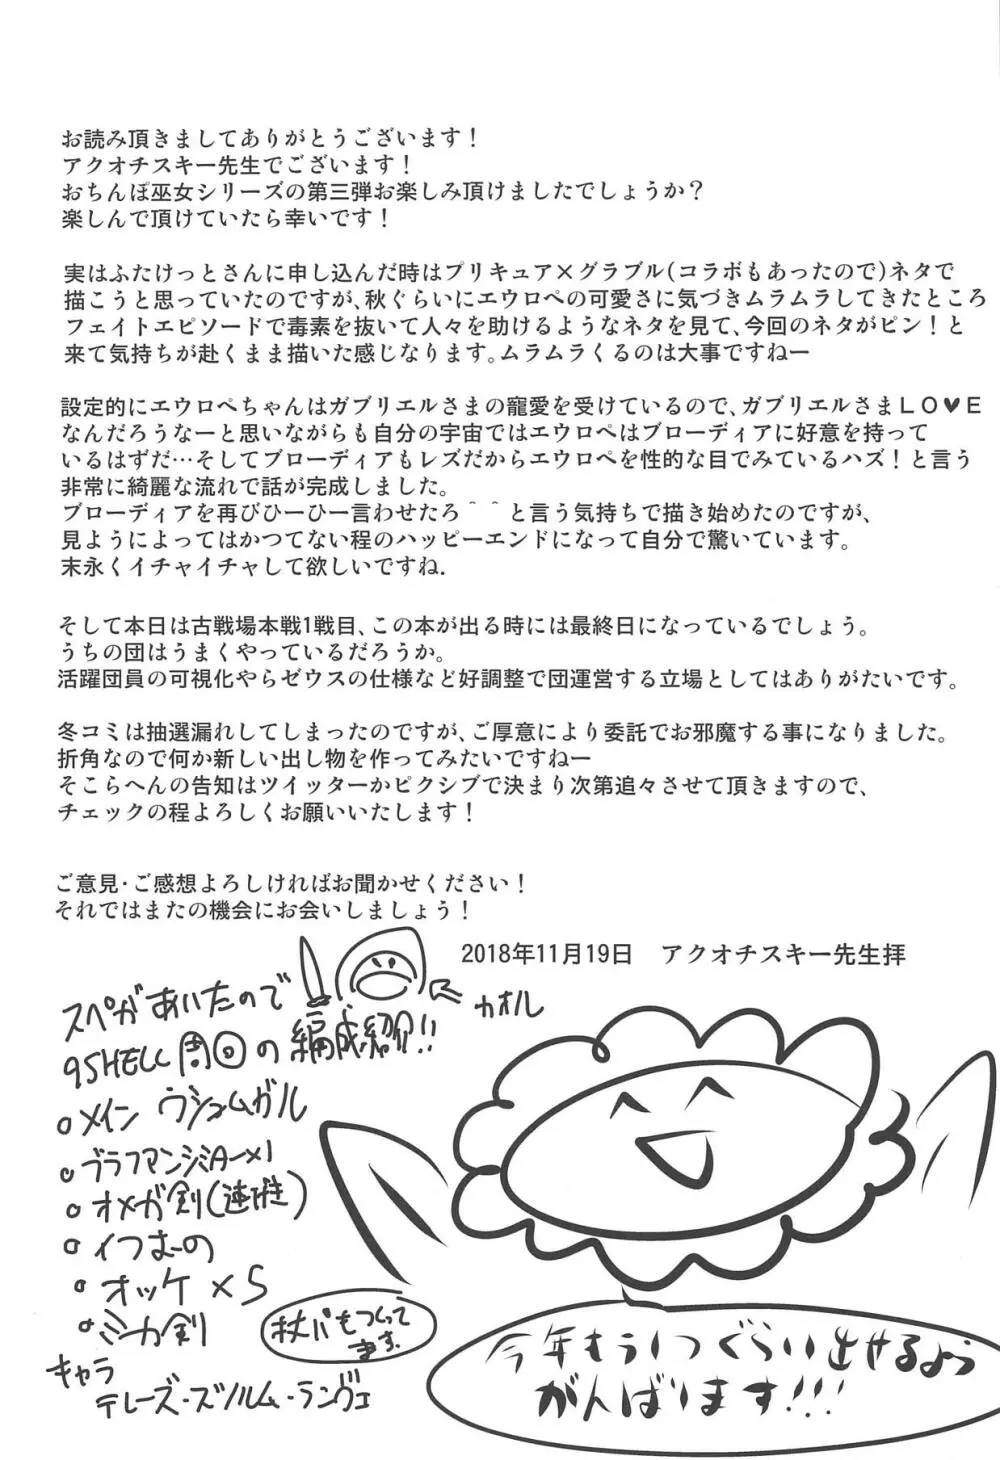 お読み頂きましてありがとうございます！
アクオチスキー先生でございます！
おちんぽ巫女シリーズの第三弾お楽しみ頂けましたでしょうか？
楽しんで頂けていたら幸いです！
実はふたけっとさんに申し込んだ時はプリキュア×グラブル(コラボもあったので)ネタで
描こうと思っていたのですが、秋ぐらいにエウロペの可愛さに気づきムラムラしてきたところ
フェイトエピソードで毒素を抜いて人々を助けるようなネタを見て、今回のネタがピン！と
来て気持ちが赴くまま描いた感じなります。ムラムラくるのは大事ですねー
設定的にエウロペちゃんはガブリエルさまの寵愛を受けているので、ガブリエルさまＬＯ♥Ｅ
なんだろうなーと思いながらも自分の宇宙ではエウロペはブローディアに好意を持って
いるはずだ…そしてブローディアもレズだからエウロペを性的な目でみているハズ！と言う
非常に綺麗な流れで話が完成しました。
ブローディアを再びひーひー言わせたろ＾＾と言う気持ちで描き始めたのですが、
見ようによってはかつてない程のハッピーエンドになって自分で驚いています。
末永くイチャイチャして欲しいですね.
そして本日は古戦場本戦1戦目、この本が出る時には最終日になっているでしょう。
うちの団はうまくやっているだろうか。
活躍団員の可視化やらゼウスの仕様など好調整で団運営する立場としてはありがたいです。
冬コミは抽選漏れしてしまったのですが、ご厚意により委託でお邪魔する事になりました。
折角なので何か新しい出し物を作ってみたいですねー
そこらへんの告知はツイッターかピクシブで決まり次第追々させて頂きますので、
チェックの程よろしくお願いいたします！
ご意見・ご感想よろしければお聞かせください！
それではまたの機会にお会いしましょう！
2018年11月19日　アクオチスキー先生拝
カオル
スペがあいたので
9SHELL周回の編成紹介!!
メイン ウシュムガル
ブラフマンシミター×1
オメガ剣(連推)
イつおーの
オッケ×5
ミカ剣
杖パもつくって
ます.
キャラ
テレーズ・ズソルム・ランヴェ
今年もう1つぐらい出せるよう
がんばります!!!